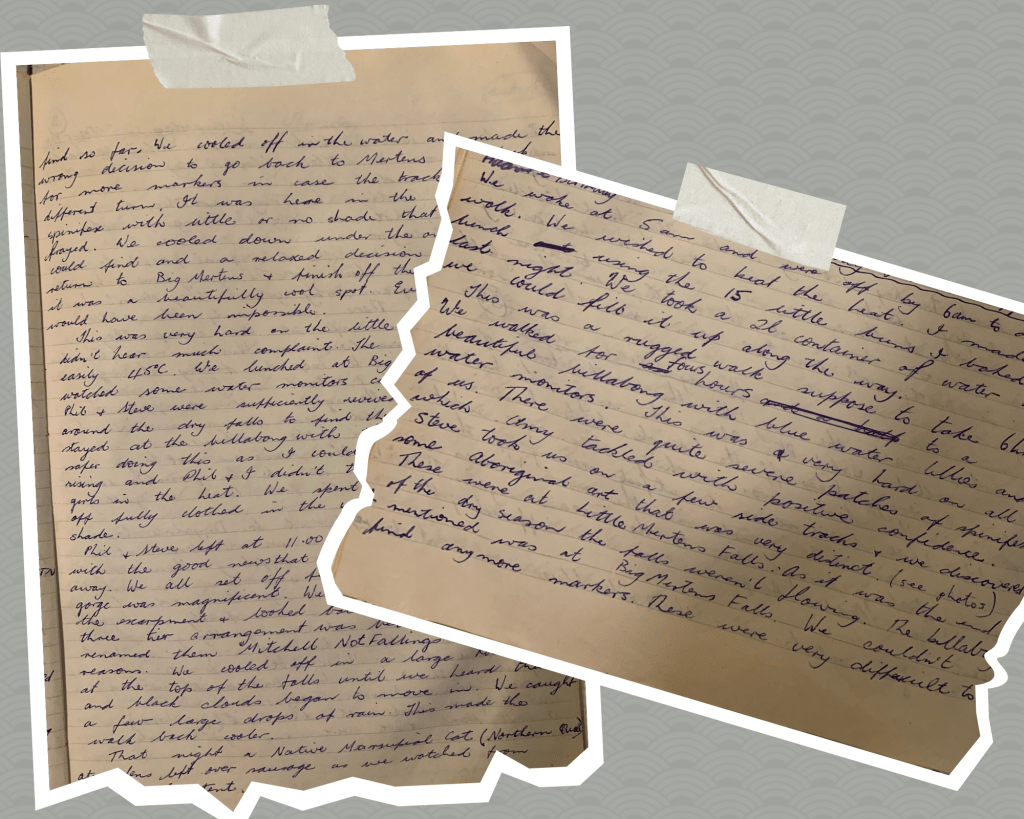 find so far. We cooled off in the water and made the
wrong decision to go back to Mertens
for more markers in case the track
different turn. It was here in the
spinifex with little or no shade that
frayed. We cooled down under the
could find and a relaxed decision
return to Big Mertens & finish off the
it was a beautifully cool spot.
would have been impossible.
This was very hard on the little
didn't hear much complaint. The
easily 45°C. We lunched at Big
watched some water monitors
Phil & Steve were sufficiently
around the dry falls to find
stayed at the billabong with
safer doing this as I could
rising and Phil & I didn't
girls in the heat. We spent
off fully clothed in the
shade.
Phil & Steve left at 11.00
with the good news that
away. We all set off
gorge was magnificent. We
the escarpment & looked
three tier arrangement was
renamed them Mitchell Not Fallings
reasons. We cooled off in a large
at the top of the falls until we heard
and black clouds began to move in. We caught
a few large drops of rain. This made the
walk back cooler.
That night a Native Marsupial Cat (Northern Quoll)
left over sausage as we watched from
tent.
We woke at 5am and were off by 6am to
walk. We wished to beat the heat. I made
lunch using the 15 little buns I baked
last night. We took a 2l container of water
we could fill it up along the way.
This was a rugged walk suppose to take 6
We walked for four hours to a
beautiful billabong with blue water lillies and
water monitors. This was a very hard on all
of us. There were quite severe patches of spinifex
which Amy tackled with positive confidence.
Steve took us on a few side tracks & we discovered
some Aboriginal art that was very distinct. (see photos)
These were at Little Mertens Falls. As it was the end
of the dry season the falls weren't flowing. The
mentioned was at Big Mertens Falls. We couldn't
find anymore markers. These were very difficult to